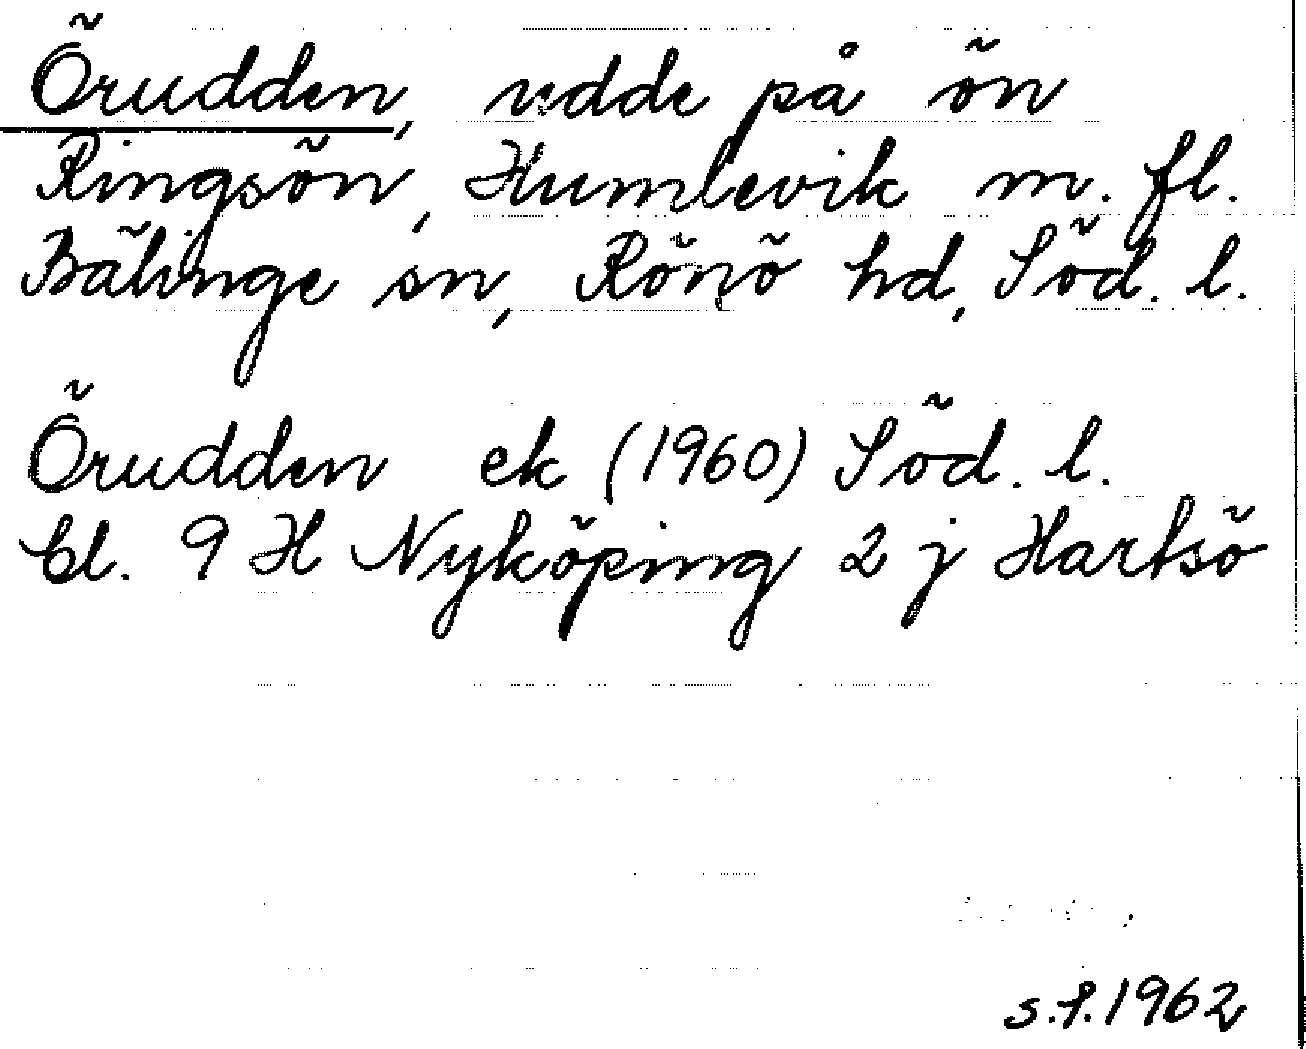 Örudden, udde på ön
Ringsön, Humlevik m. fl.
Bälinge sn, Rönö hd, Söd. l.
Örudden ek (1960) Söd. l.
bl. 9 H Nyköping 2 j Hartsö
s.f. 1962